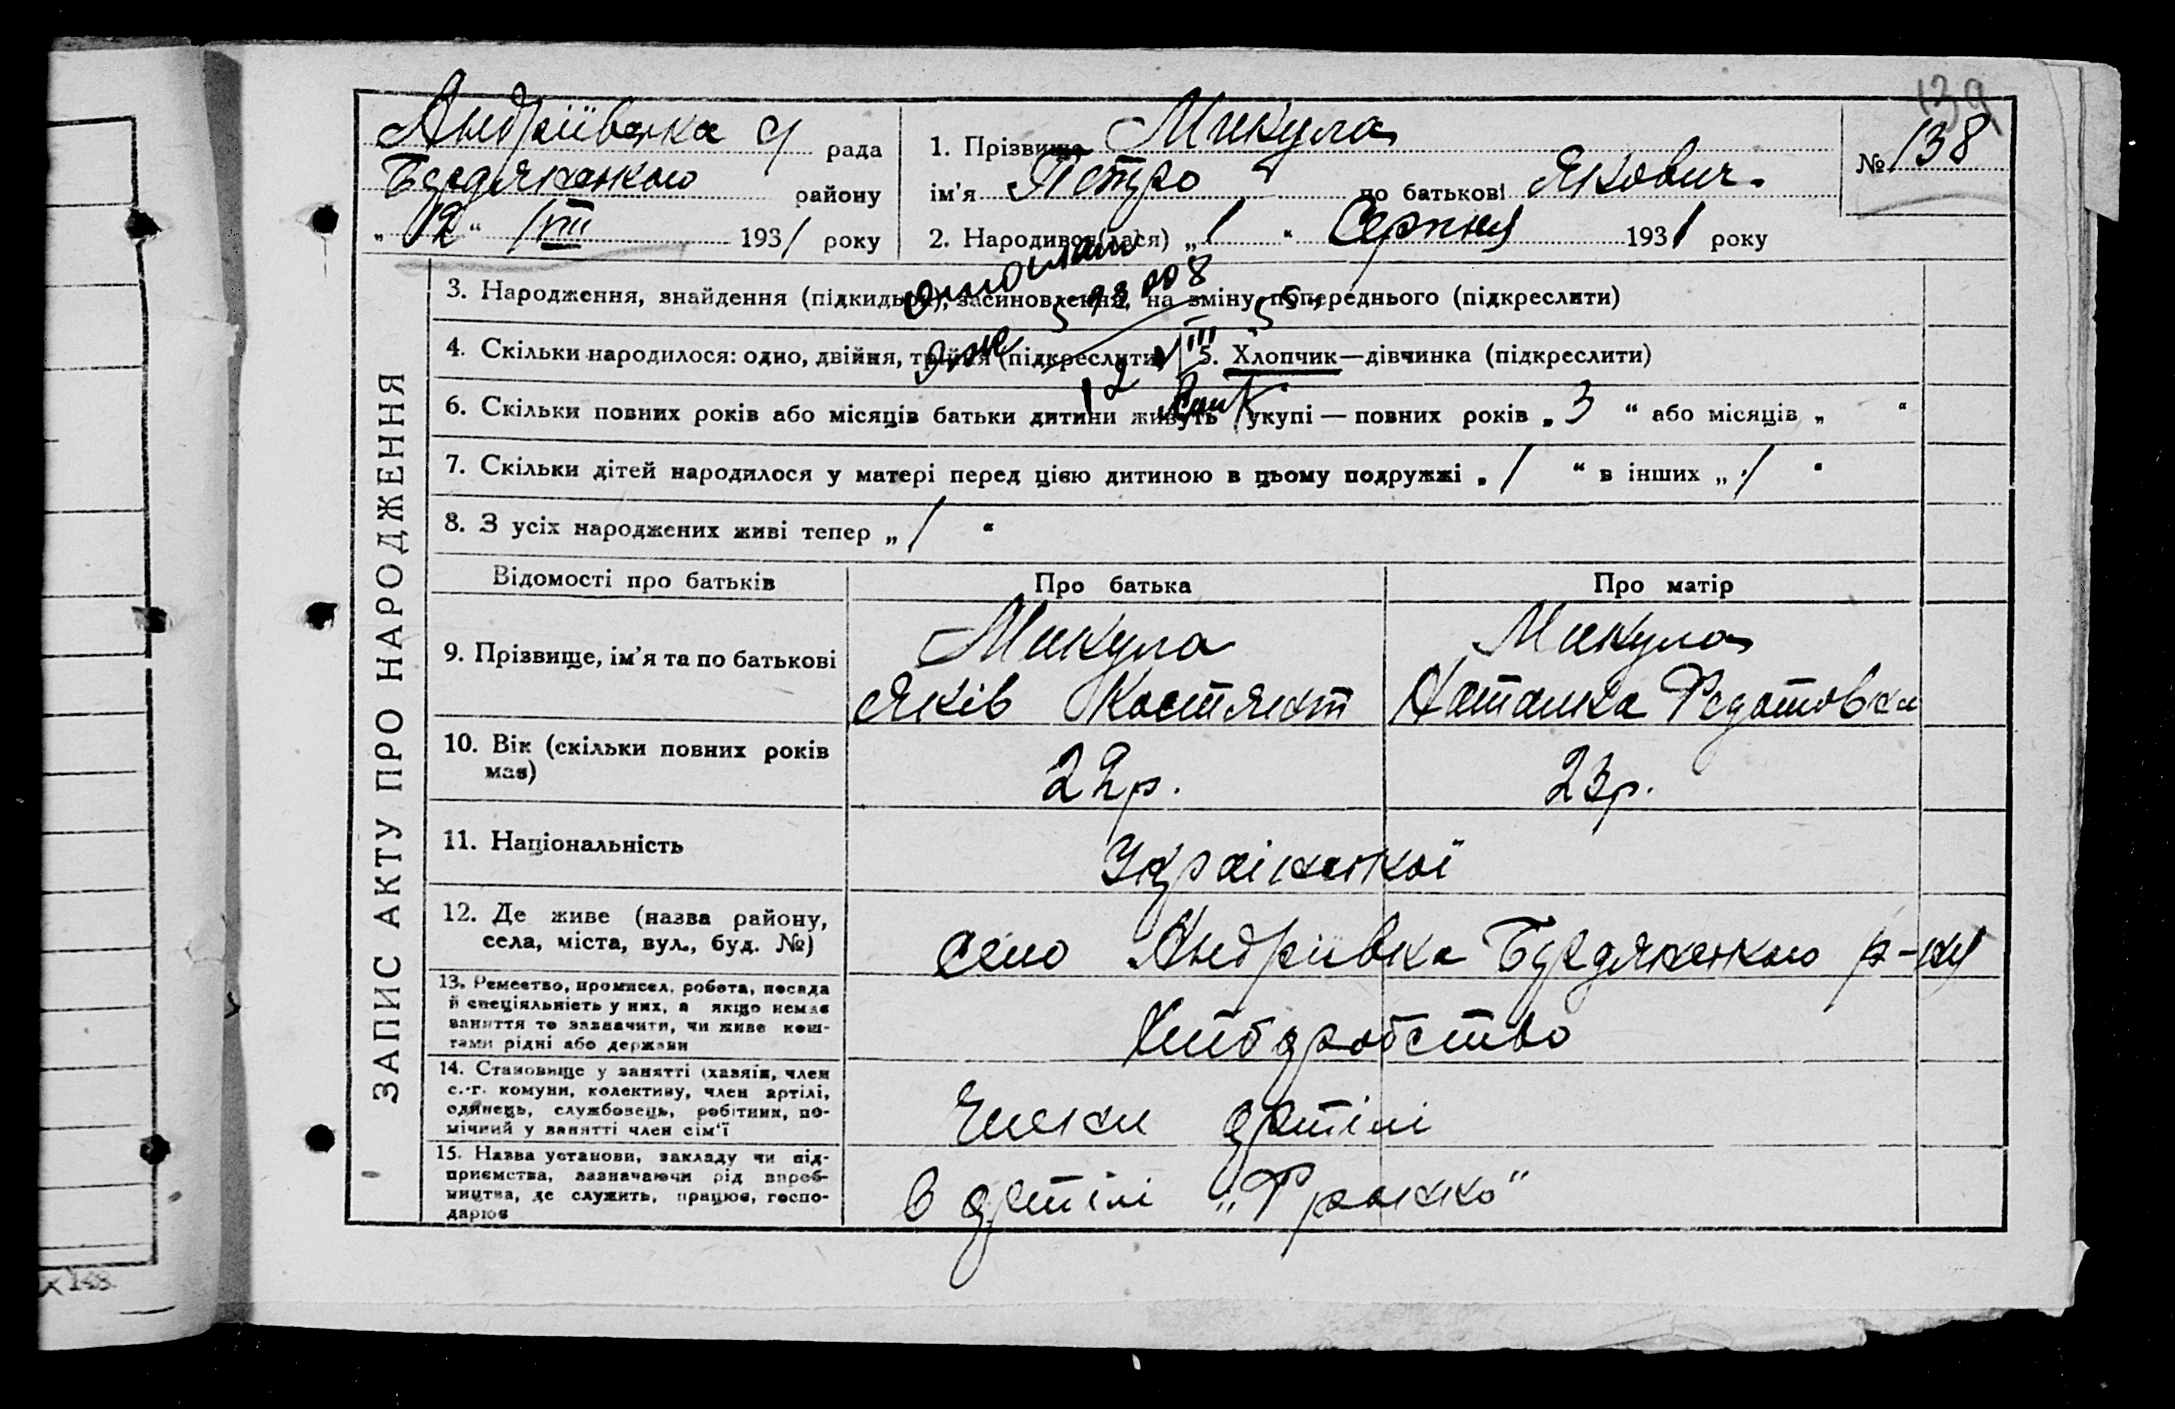 139
Андріївська с/ рада
Бердянського району
„12“ /VIII 1931 року
1. Прізвище Микула
ім'я Петро по батькові Якович.
2. Народився(лася) „1“ Серпня 1931 року
№ 138
ЗАПИС АКТУ ПРО НАРОДЖЕННЯ
3. Народження, знайдення (підкидька), засиновлення, на зміну попереднього (підкреслити)
4. Скільки народилося: одно, двійня, трійня (підкреслити)
5. Хлопчик—дівчинка (підкреслити)
12 VIII 55
6. Скільки повних років або місяців батьки дитини живуть укупі — повних років „3“ або місяців „ “
7. Скільки дітей народилося у матері перед цією дитиною в цьому подружжі „/ “ в інших „/ “
8. З усіх народжених живі тепер „/ “
Відомості про батьків Про батька Про матір
9. Прізвище, ім'я та по батькові
Микула
Яків Костянт
Микула
Наталка Федотовна
10. Вік (скільки повних років
має)
22р. 23р.
11. Національність
Української
12. Де живе (назва району,
села, міста, вул., буд. №)
село Андріївка Бердянського р-ну
13. Ремество, промисел, робота, посада
й спеціяльність у них, а якщо немає
заняття то зазначити, чи живе кош-
тами рідні або держави
Хліборобство
14. Становище у занятті (хазяїн, член
с.-г. комуни, колективу, член артілі,
одинець, службовець, робітник, по-
мічний у занятті член сім'ї
Члени артілі
15. Назва установи, закладу чи під-
приємства, зазначаючи рід вироб-
ництва, де служить, працює, госпо-
дарює
в артілі „Франко“
148.